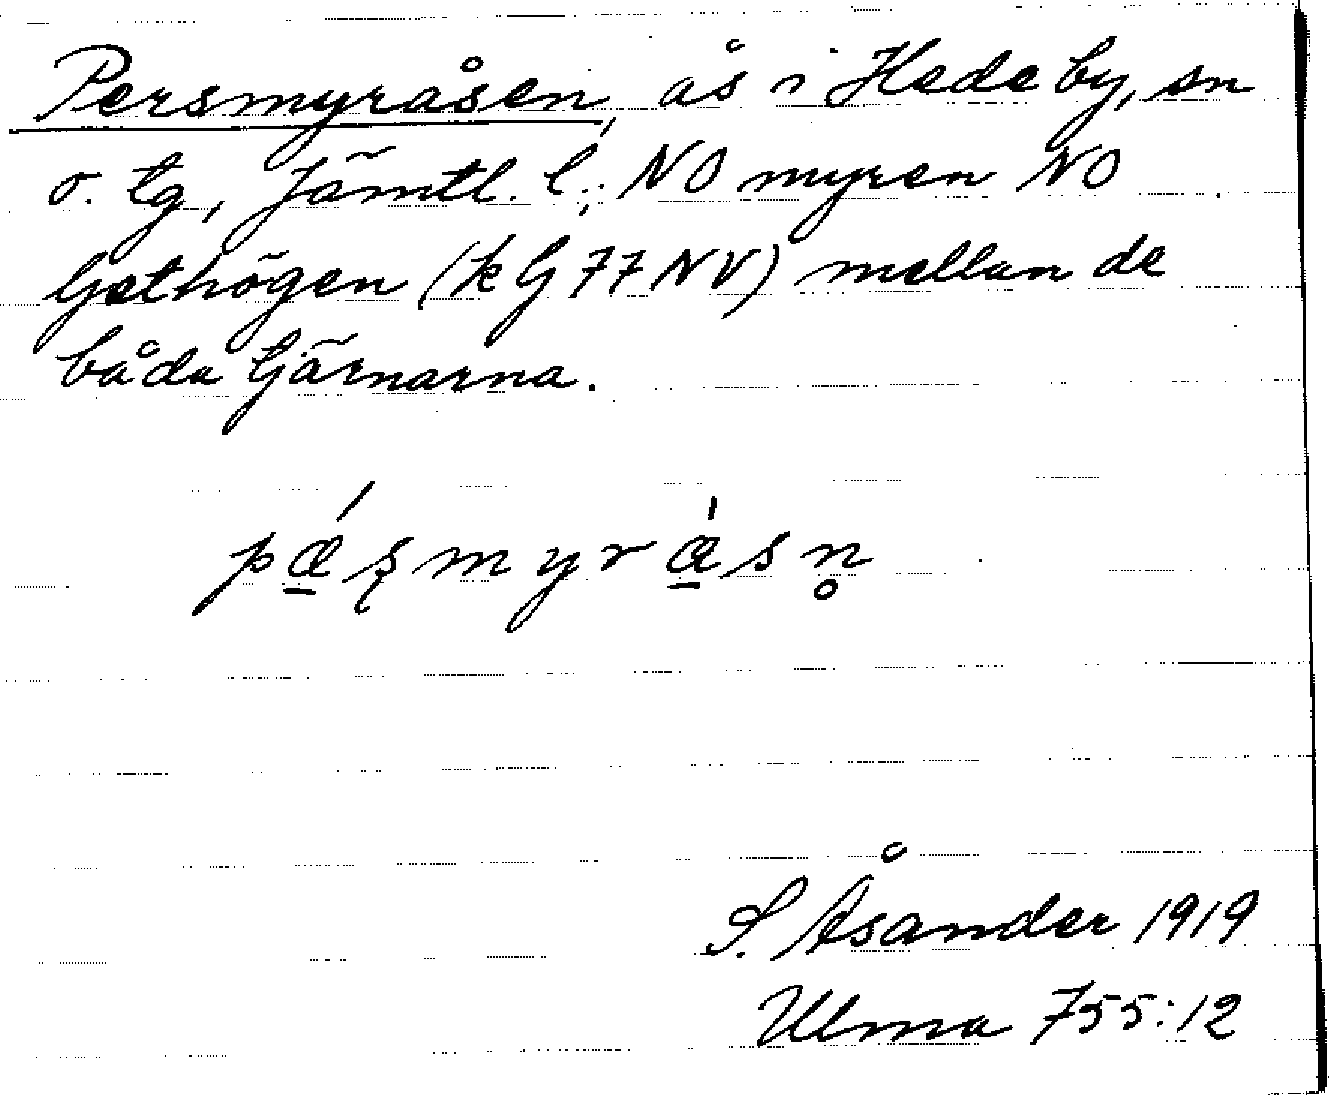 Persmyråsen, ås i Hede by, sn
o. tg, Jämtl. l.; NO myren NO
Gethögen (k G 77 NV) mellan de
båda Gärnarna.
pǽ̱ʂmyrǻ̱sn̥
S. Åsander 1919
Ulma 755:12